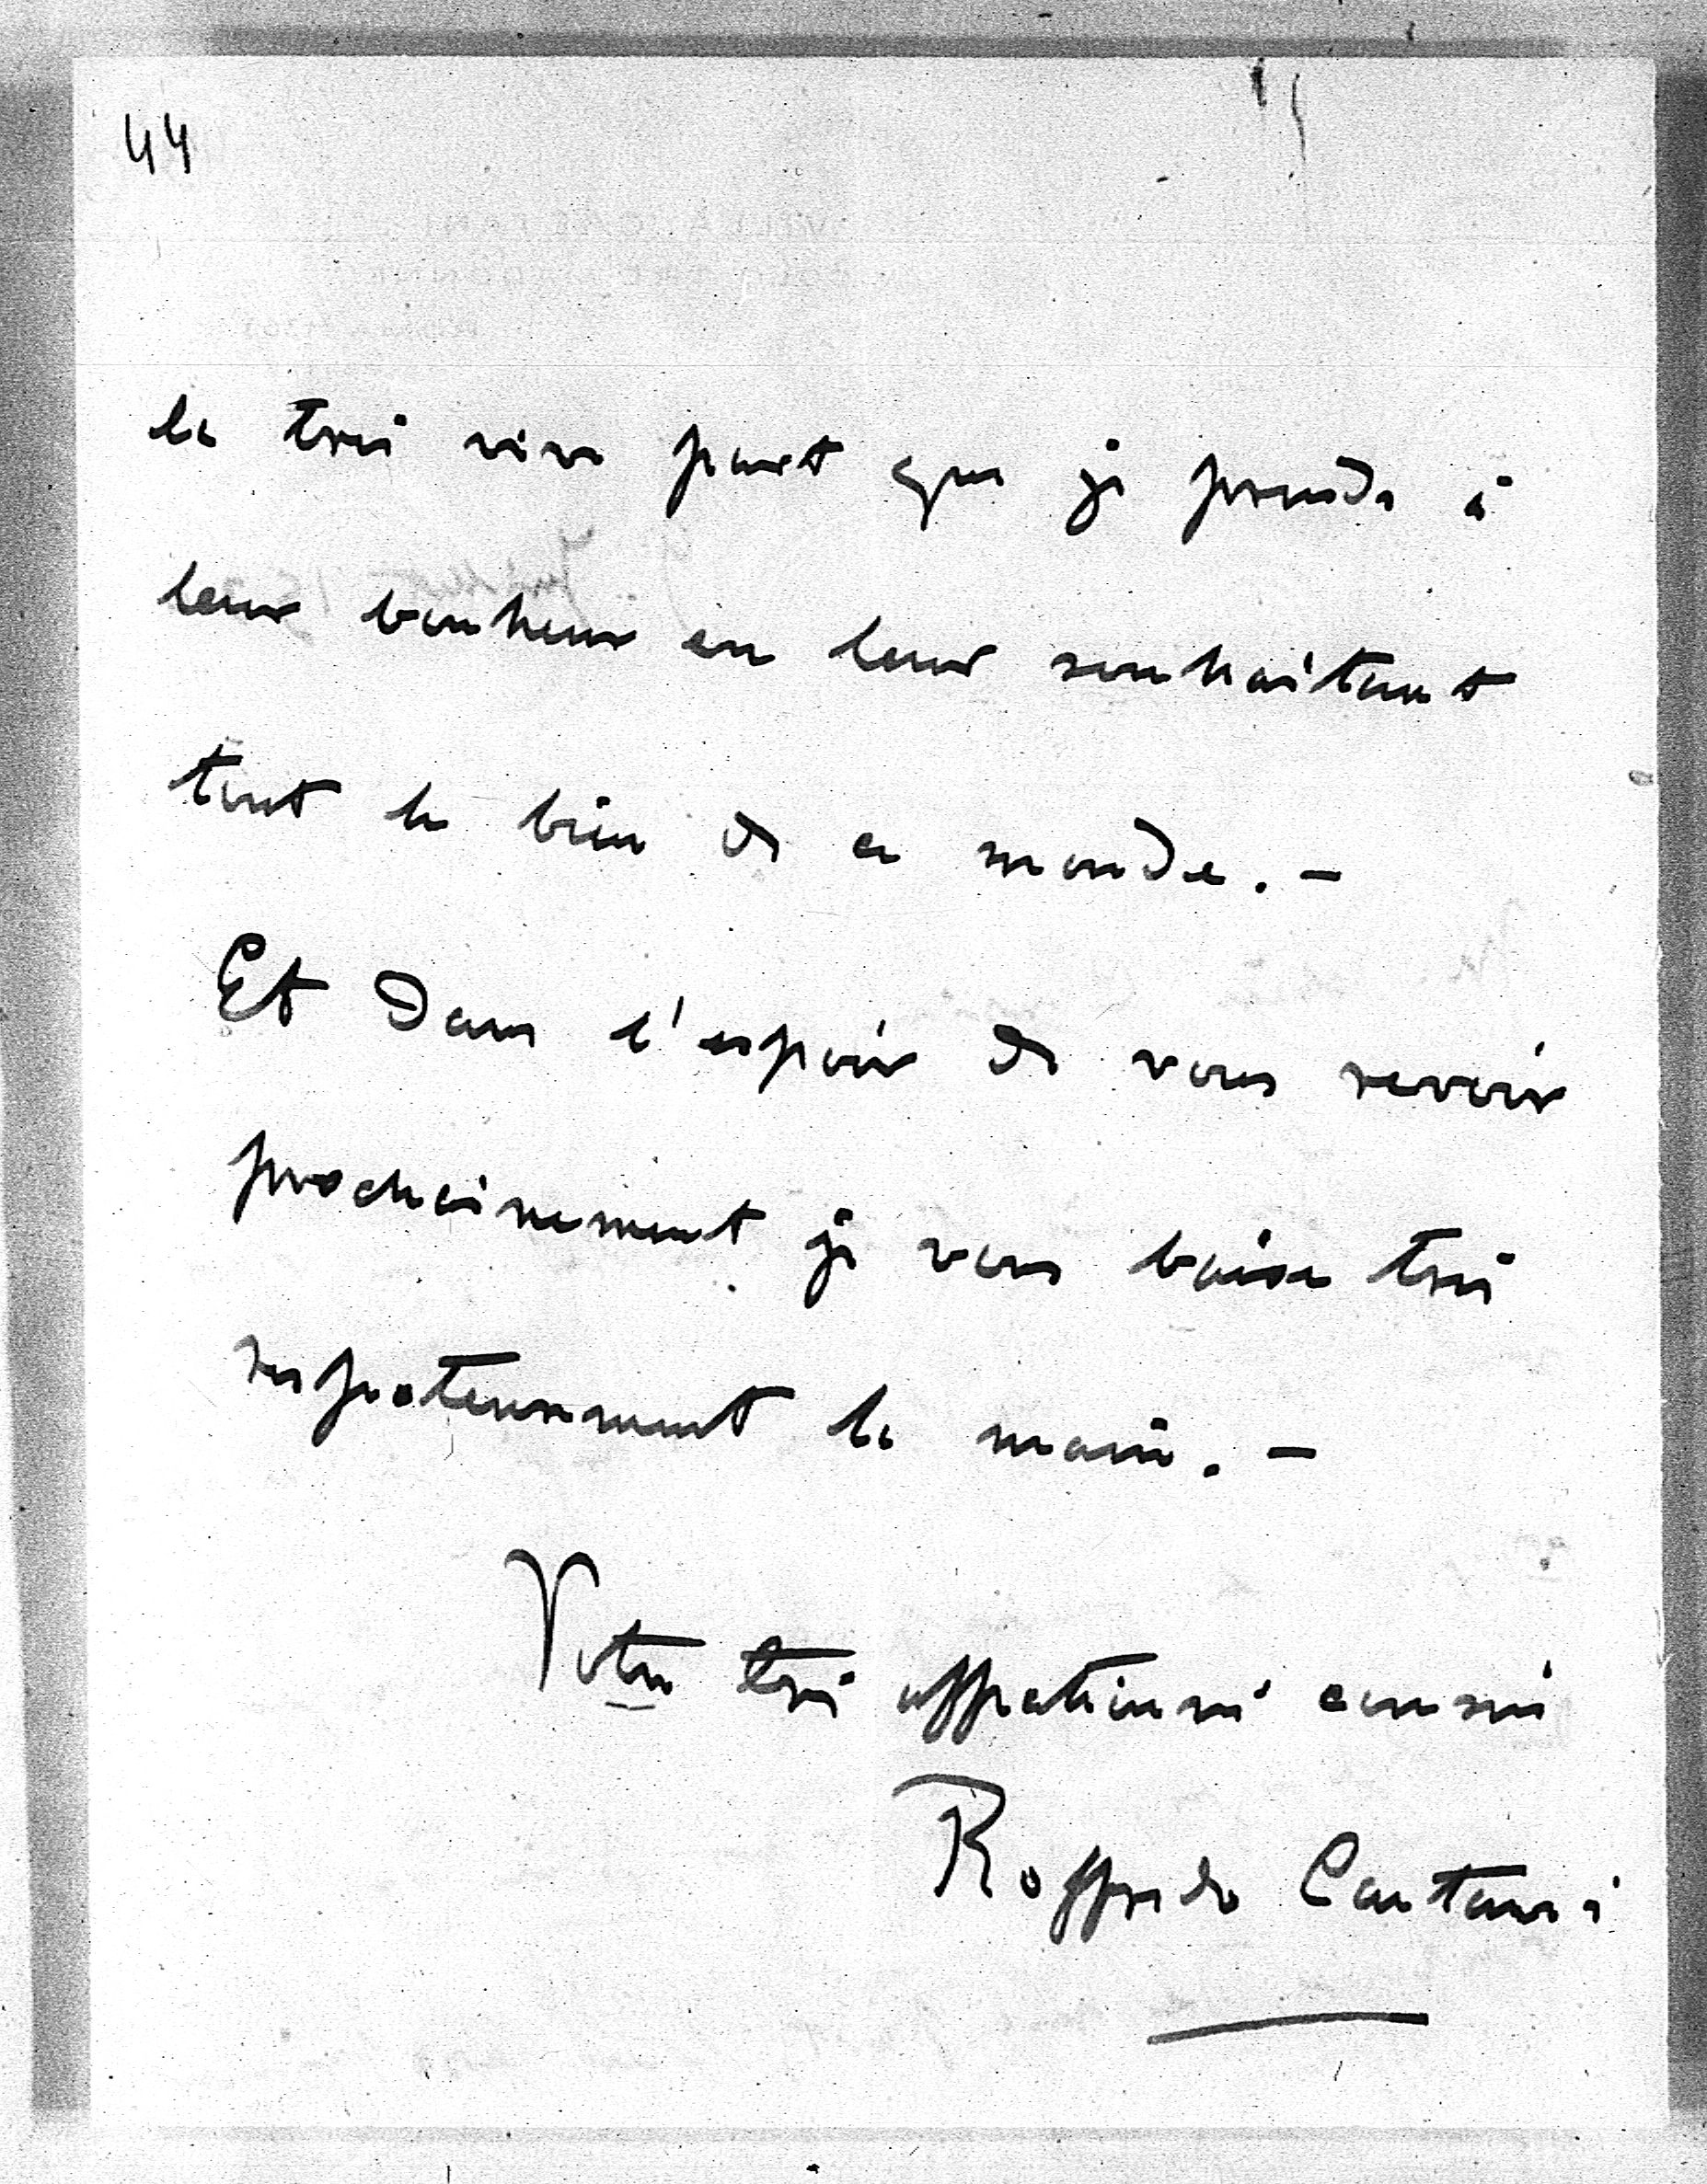 44
la très vive part que je prends à
leur bonheur en leur souhaitant
tout le bien de ce monde. -
Et dans l'espoir de vous revoir
prochainement je vous baise très
respecteusement la main. -
Votre très affectionné cousin
Roffredo Caetani